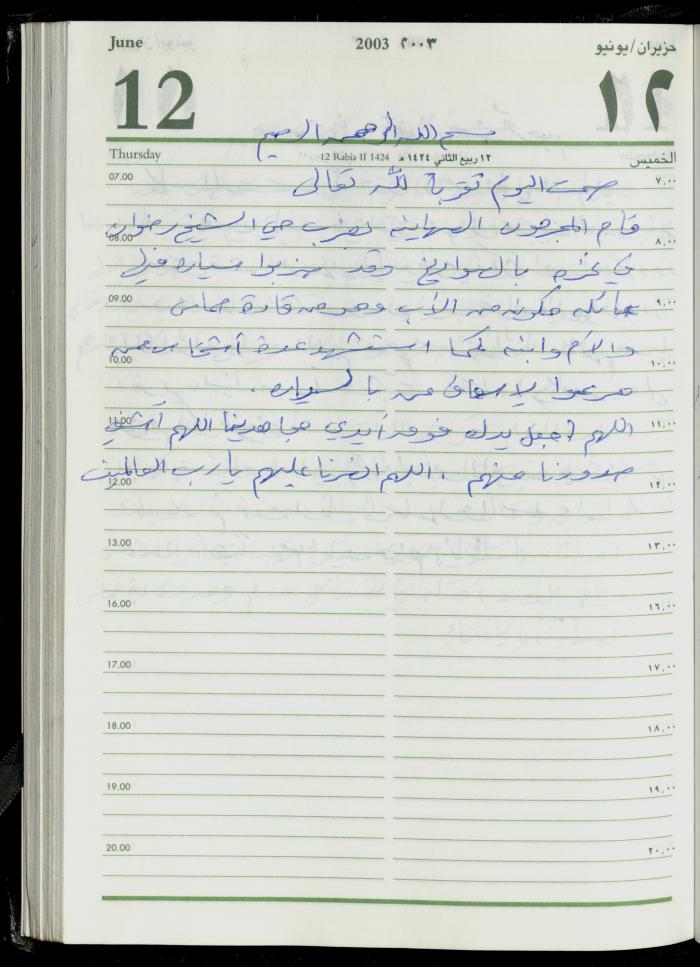 June 2003 ٢٠٠٣ حزيران/يونيو
12 ١٢
بسم الله الرحمن الرحيم
Thursday 12 Rabia II 1424 ١٢ ربيع الثاني ١٤٢٤ هـ الخميس
07.00 ٧,٠٠
صمت اليوم تقرباً لله تعالى
قام المجرمون الصهاينه بضرب حي الشيخ رضوان
08.00 ٨,٠٠
في غزه بالصواريخ وقد ضربوا سياره فيها
09.00 ٩,٠٠
عائله مكونه من الأب وهو من قادة حماس
والأم وابنه كما استشهد عدة أشخاص ممن
10.00 ١٠,٠٠
هرعوا لإسعاف من بالسياره.
11.00 ١١,٠٠
اللهم اجعل يدك فوق أيدي مجاهدينا اللهم أشفي
صدورنا منهم . اللهم انصرنا عليهم يا رب العالمين
12.00 ١٢,٠٠
13.00 ١٣,٠٠
16.00 ١٦,٠٠
17.00 ١٧,٠٠
18.00 ١٨,٠٠
19.00 ١٩,٠٠
20.00 ٢٠,٠٠